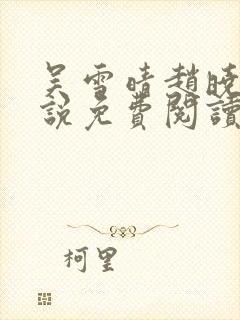 吴雪晴趙曉
說免費閱讀
柯里